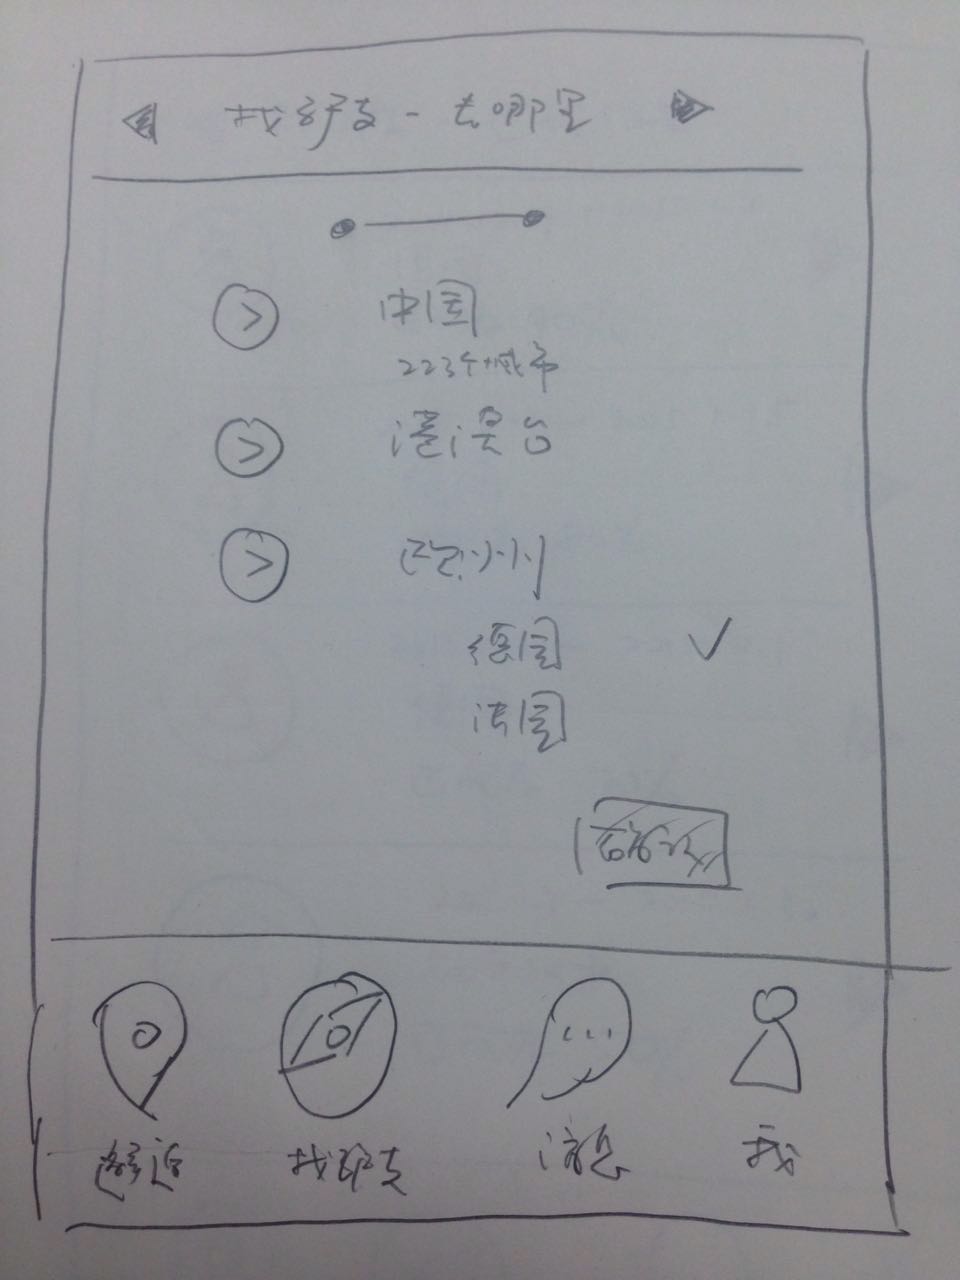 找好友 - 去哪里
中国
223个城市
港澳台
欧洲
德国
法国
邂逅
找朋友
消息
我